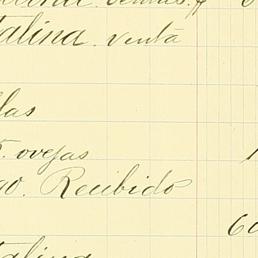 talina. venta
las
5. ovejas 1
go. Recibido
60
talina